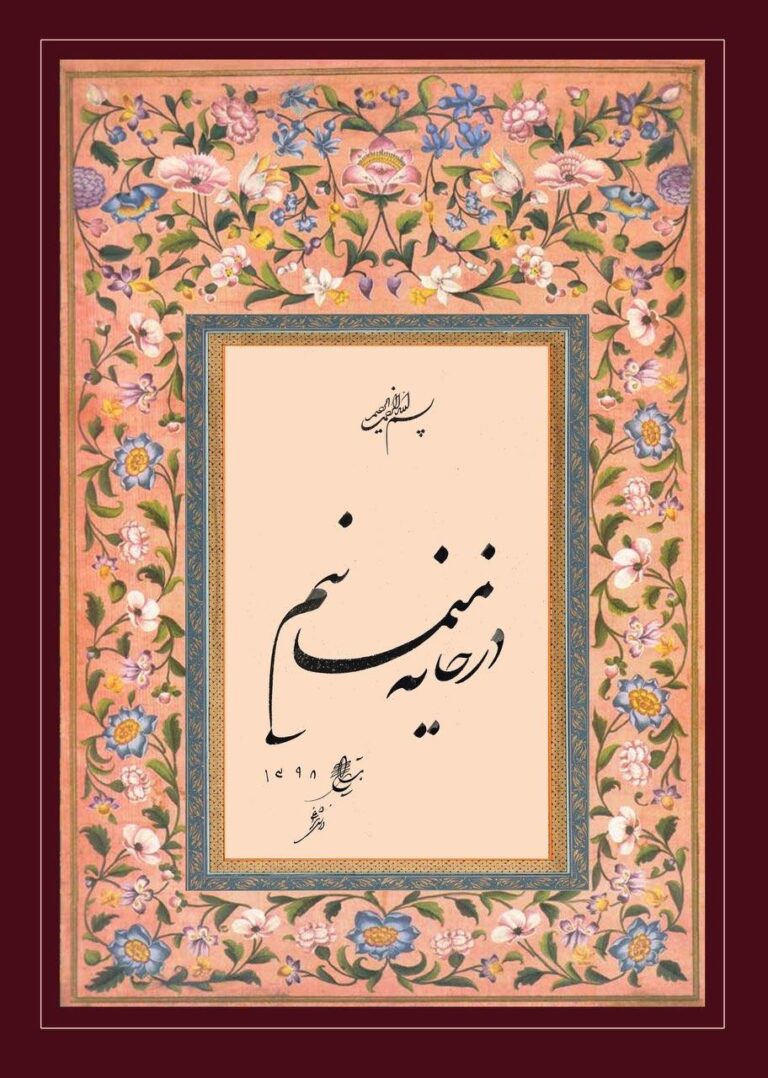 بسم الله الرحمن الرحیم
در خانه میمانیم
۱۳۹۸